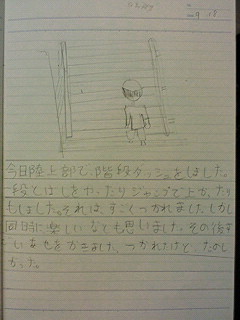 今日陸上部で、階段ダッシュをしました。
一段とばしをやったりジャンプで上がったり
もしました。それは、すごくつかれました。しかし
同時に楽しいなとも思いました。その後す
ごいあせをかきました。つかれたけど、たのし
かった。